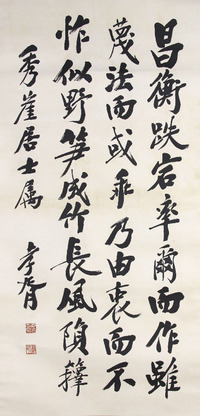 昌衡跌宕率爾而作雖
蔑法而或乖乃由衷而不
怍似野笋成竹長風隕籜
秀崖居士属
孝胥